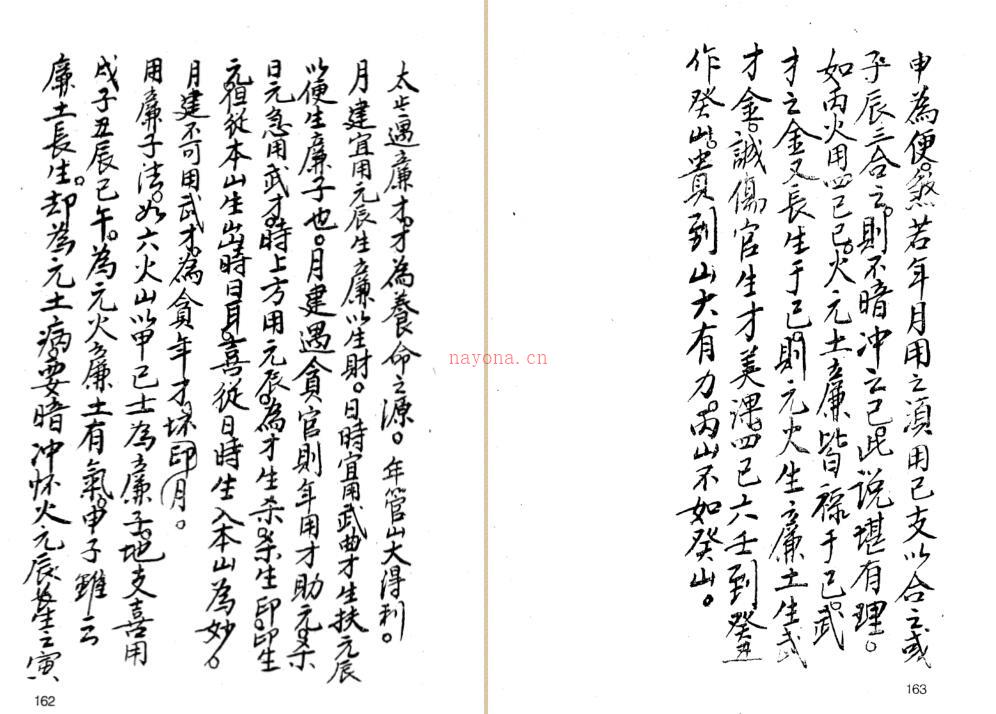 太遇廉才才為養命之源。年管山大得利。
月建宜用元辰生廉以生財。日時宜用武曲才生扶元辰
以便生廉子也。月建遇貪官則年用才助元。
日元急用武才。時上方用元辰。為才生杀。杀生印。印生
元。但從本山生出時日耳。喜從日時生入本山為妙。
月建不可用武才。為貪年才。坏印月。
用廉子法。如六火山以甲己士為廉子。地支喜用
戌子丑辰巳午。為元火廉土有氣。申子雖云
廉土長生。却為元土病。要暗冲怀火元辰長生之寅
162
申為便。煞若年月用之須用巳支以合之或
子辰三合之。則不暗冲之巳。此說堪有理。
如丙火用四己巳。火元土廉皆祿于巳。武
才之金又長生于巳。則元火生廉土生武
才金。誠傷官生才美課。四己六壬到癸丑
作癸山。貴到山大有力。丙山不如癸山。
163
nayona.cn